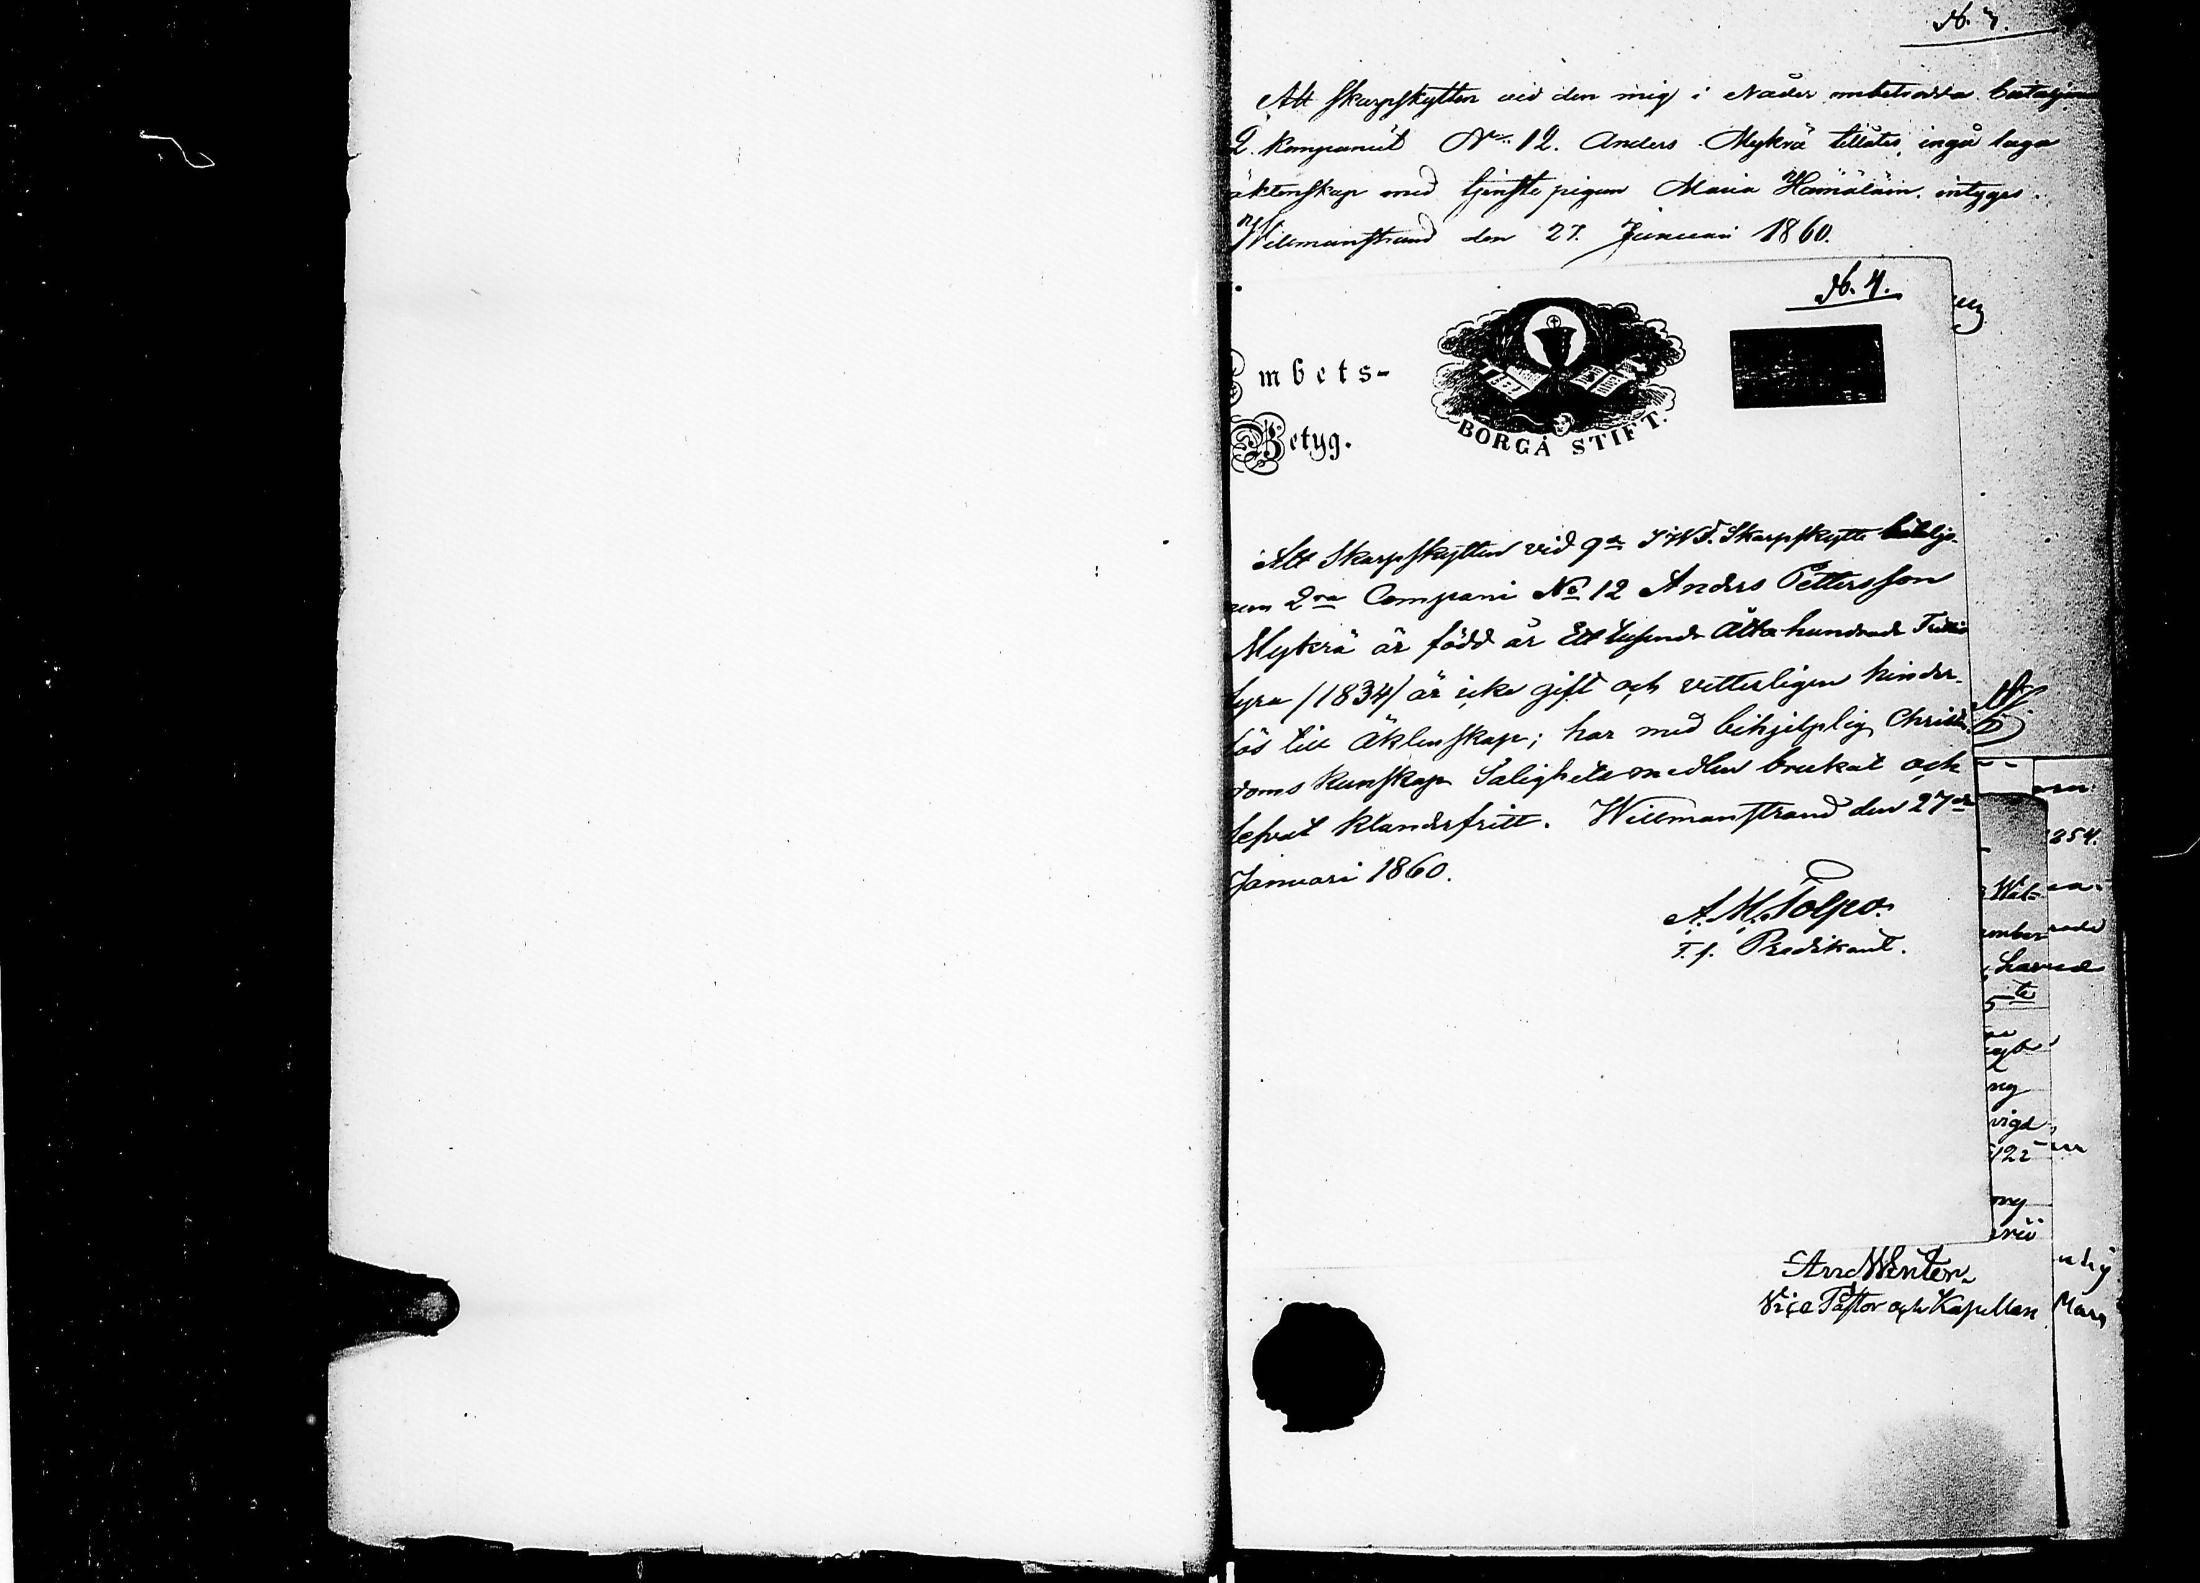 No. 7.
Att Skarpskytten vid den mig i Nåder anbetrodda bataljon
2. Kompaniet No 12. Anders Mykrä tillåtes, ingå laga
äktenskap med tjenstepigan Maria Hämäläin. intyges.
Willmanstrand den 27. Januari 1860.
No. 4.
Embets-
Betyg.
BORGÅ STIFT.
Att Skarpskytten vid 9de Skarpskytte bataljo-
nen 2dra Compani No 12 Anders Pettersson
Mykrä är född år Ett tusende Åtta hundrade Trettio
fyra /1834/ är icke gift och vitterligen hinder-
lös till Äktenskap; har med bihjelplig Christen-
doms kunskap Salighets medlen brukat och
lefvat klanderfritt. Willmanstrand den 27de
Januari 1860.
A. M. Tolpo.
T. f. Predikant.
254.
vigd
122
Winter
Vice Pastor och Kapellan